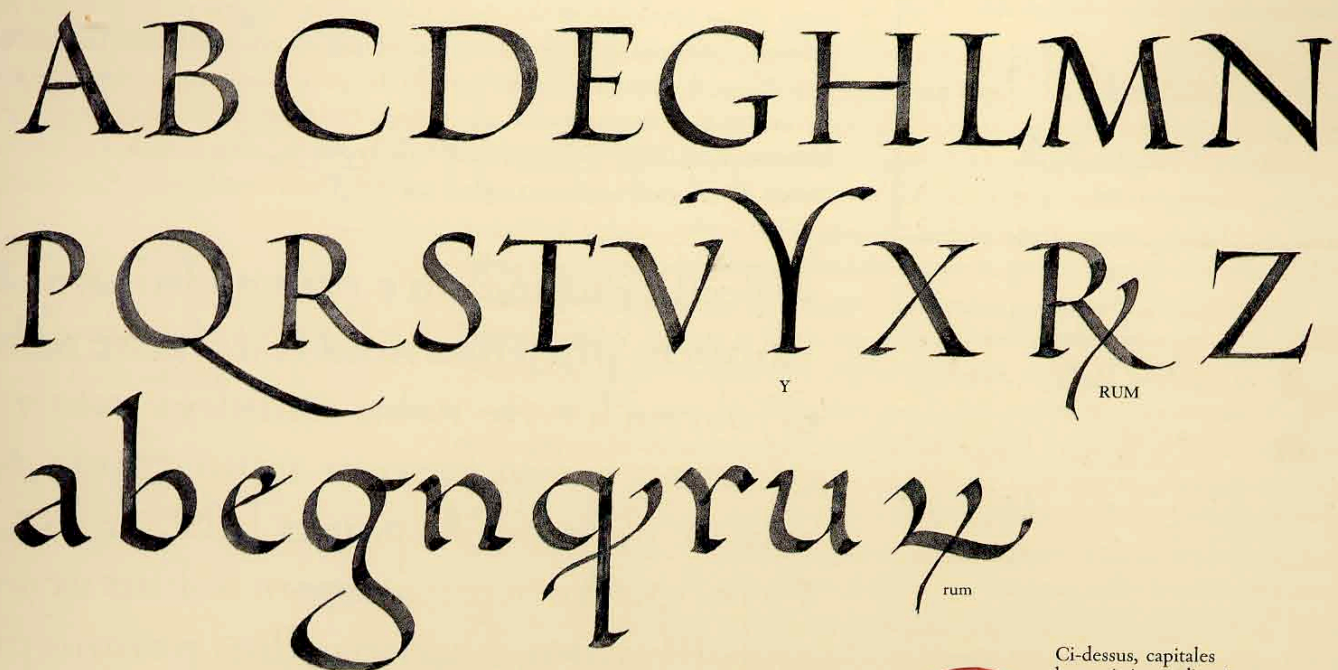 A B C D E G H L M N
P Q R S T V Y X ℞ Z
Y RUM
a b e g n q r u ꝝ
rum
Ci-dessus, capitales